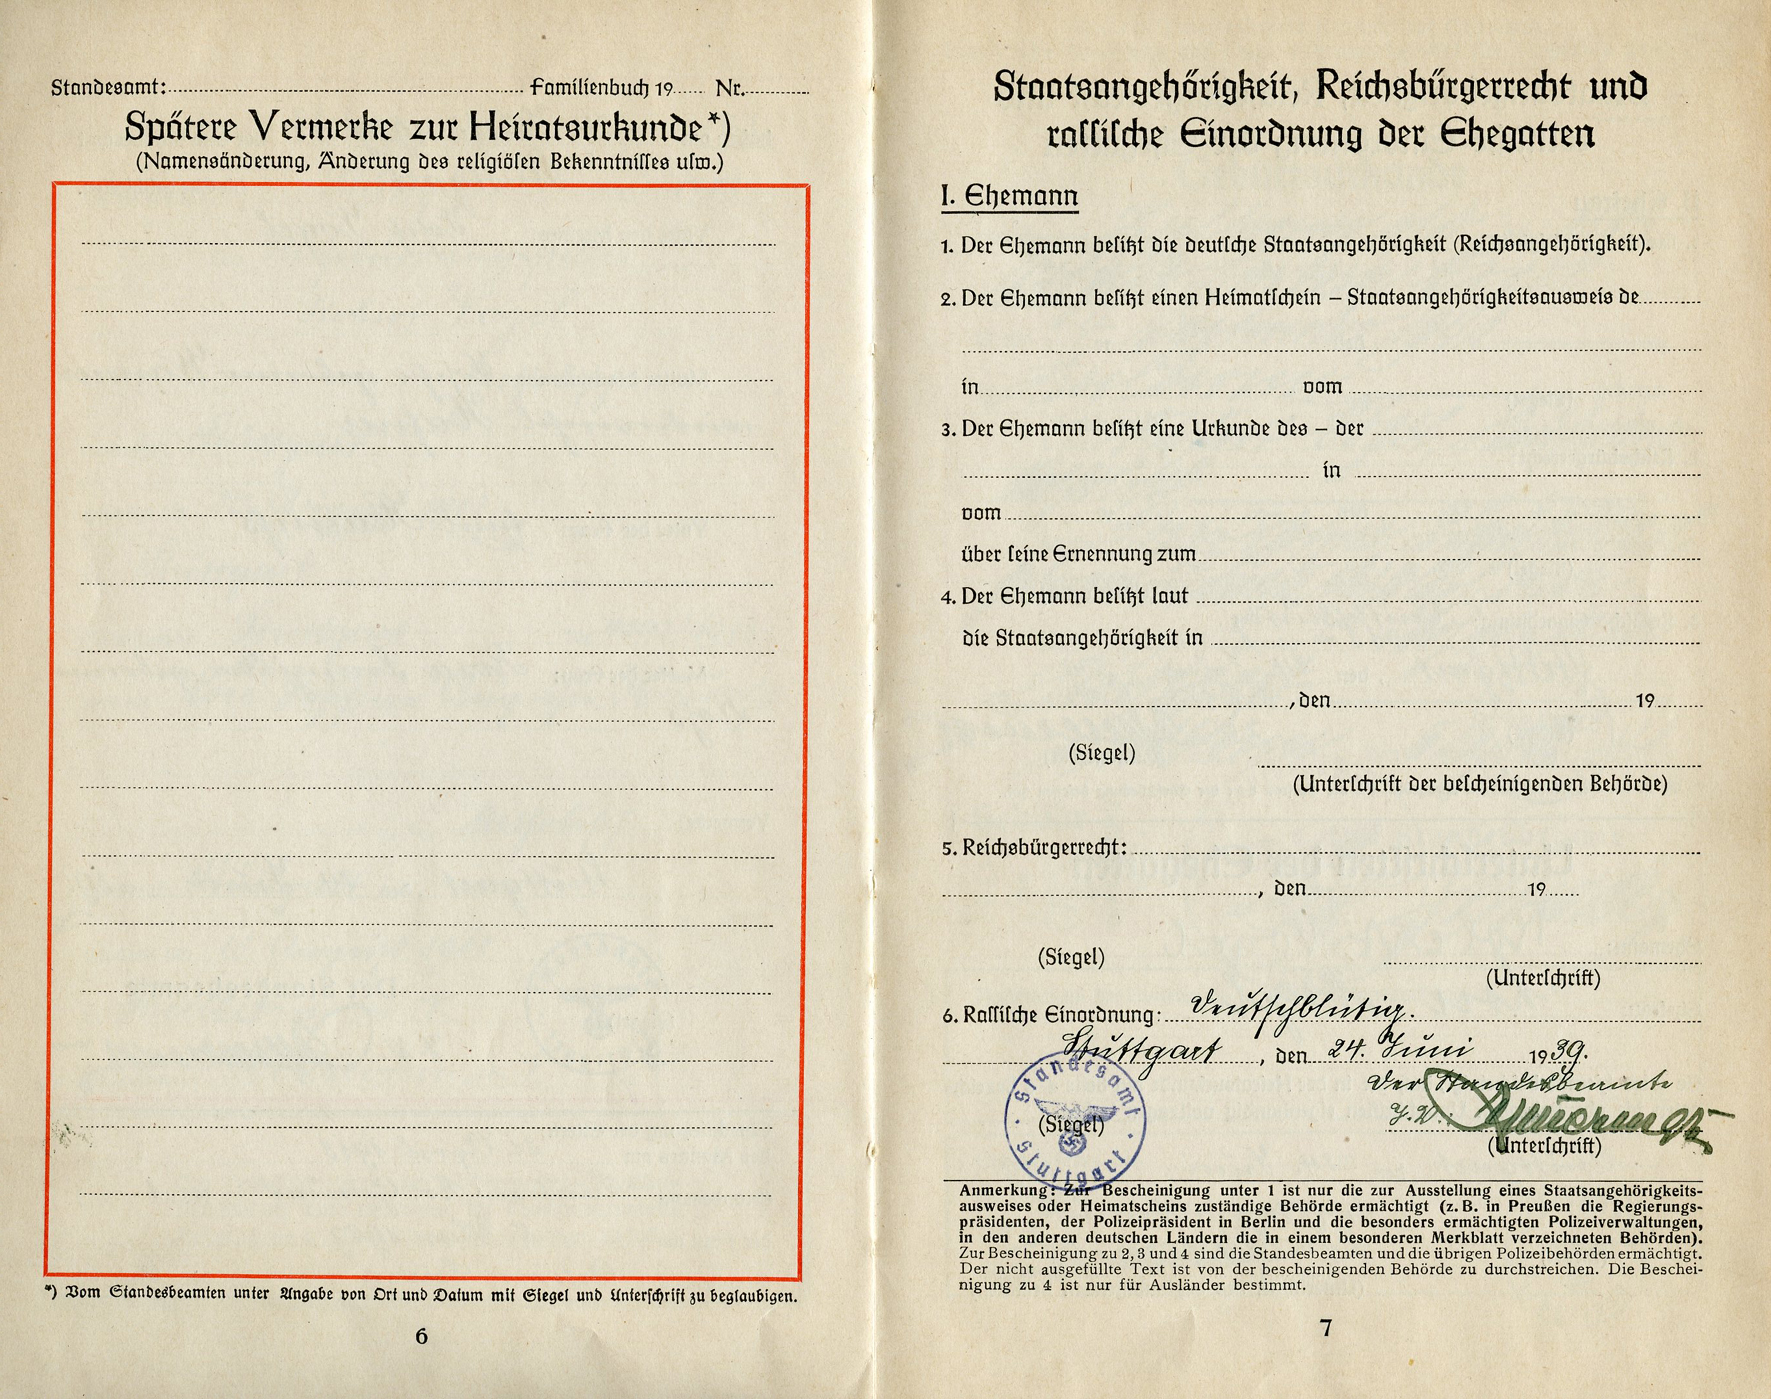 Standesamt: Familienbuch 19 Nr.
Spätere Vermerke zur Heiratsurkunde*)
(Namensänderung, Änderung des religiösen Bekenntnisses usw.)
*) Vom Standesbeamten unter Angabe von Ort und Datum mit Siegel und Unterschrift zu beglaubigen.
6
Staatsangehörigkeit, Reichsbürgerrecht und
rassische Einordnung der Ehegatten
I. Ehemann
1. Der Ehemann besitzt die deutsche Staatsangehörigkeit (Reichsangehörigkeit).
2. Der Ehemann besitzt einen Heimatschein – Staatsangehörigkeitsausweis de
in vom
3. Der Ehemann besitzt eine Urkunde des – der
in
vom
über seine Ernennung zum
4. Der Ehemann besitzt laut
die Staatsangehörigkeit in
, den 19
(Siegel)
(Unterschrift der bescheinigenden Behörde)
5. Reichsbürgerrecht:
, den 19
(Siegel)
(Unterschrift)
6. Rassische Einordnung: Deutschblütig.
Stuttgart, den 24. Juni 1939.
Der Standesbeamte
J.V.:
(Siegel)
(Unterschrift)
Standesamt
Stuttgart
Anmerkung: Zur Bescheinigung unter 1 ist nur die zur Ausstellung eines Staatsangehörigkeits-
ausweises oder Heimatscheins zuständige Behörde ermächtigt (z. B. in Preußen die Regierungs-
präsidenten, der Polizeipräsident in Berlin und die besonders ermächtigten Polizeiverwaltungen,
in den anderen deutschen Ländern die in einem besonderen Merkblatt verzeichneten Behörden).
Zur Bescheinigung zu 2, 3 und 4 sind die Standesbeamten und die übrigen Polizeibehörden ermächtigt.
Der nicht ausgefüllte Text ist von der bescheinigenden Behörde zu durchstreichen. Die Beschei-
nigung zu 4 ist nur für Ausländer bestimmt.
7